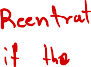 Reentrat
if the